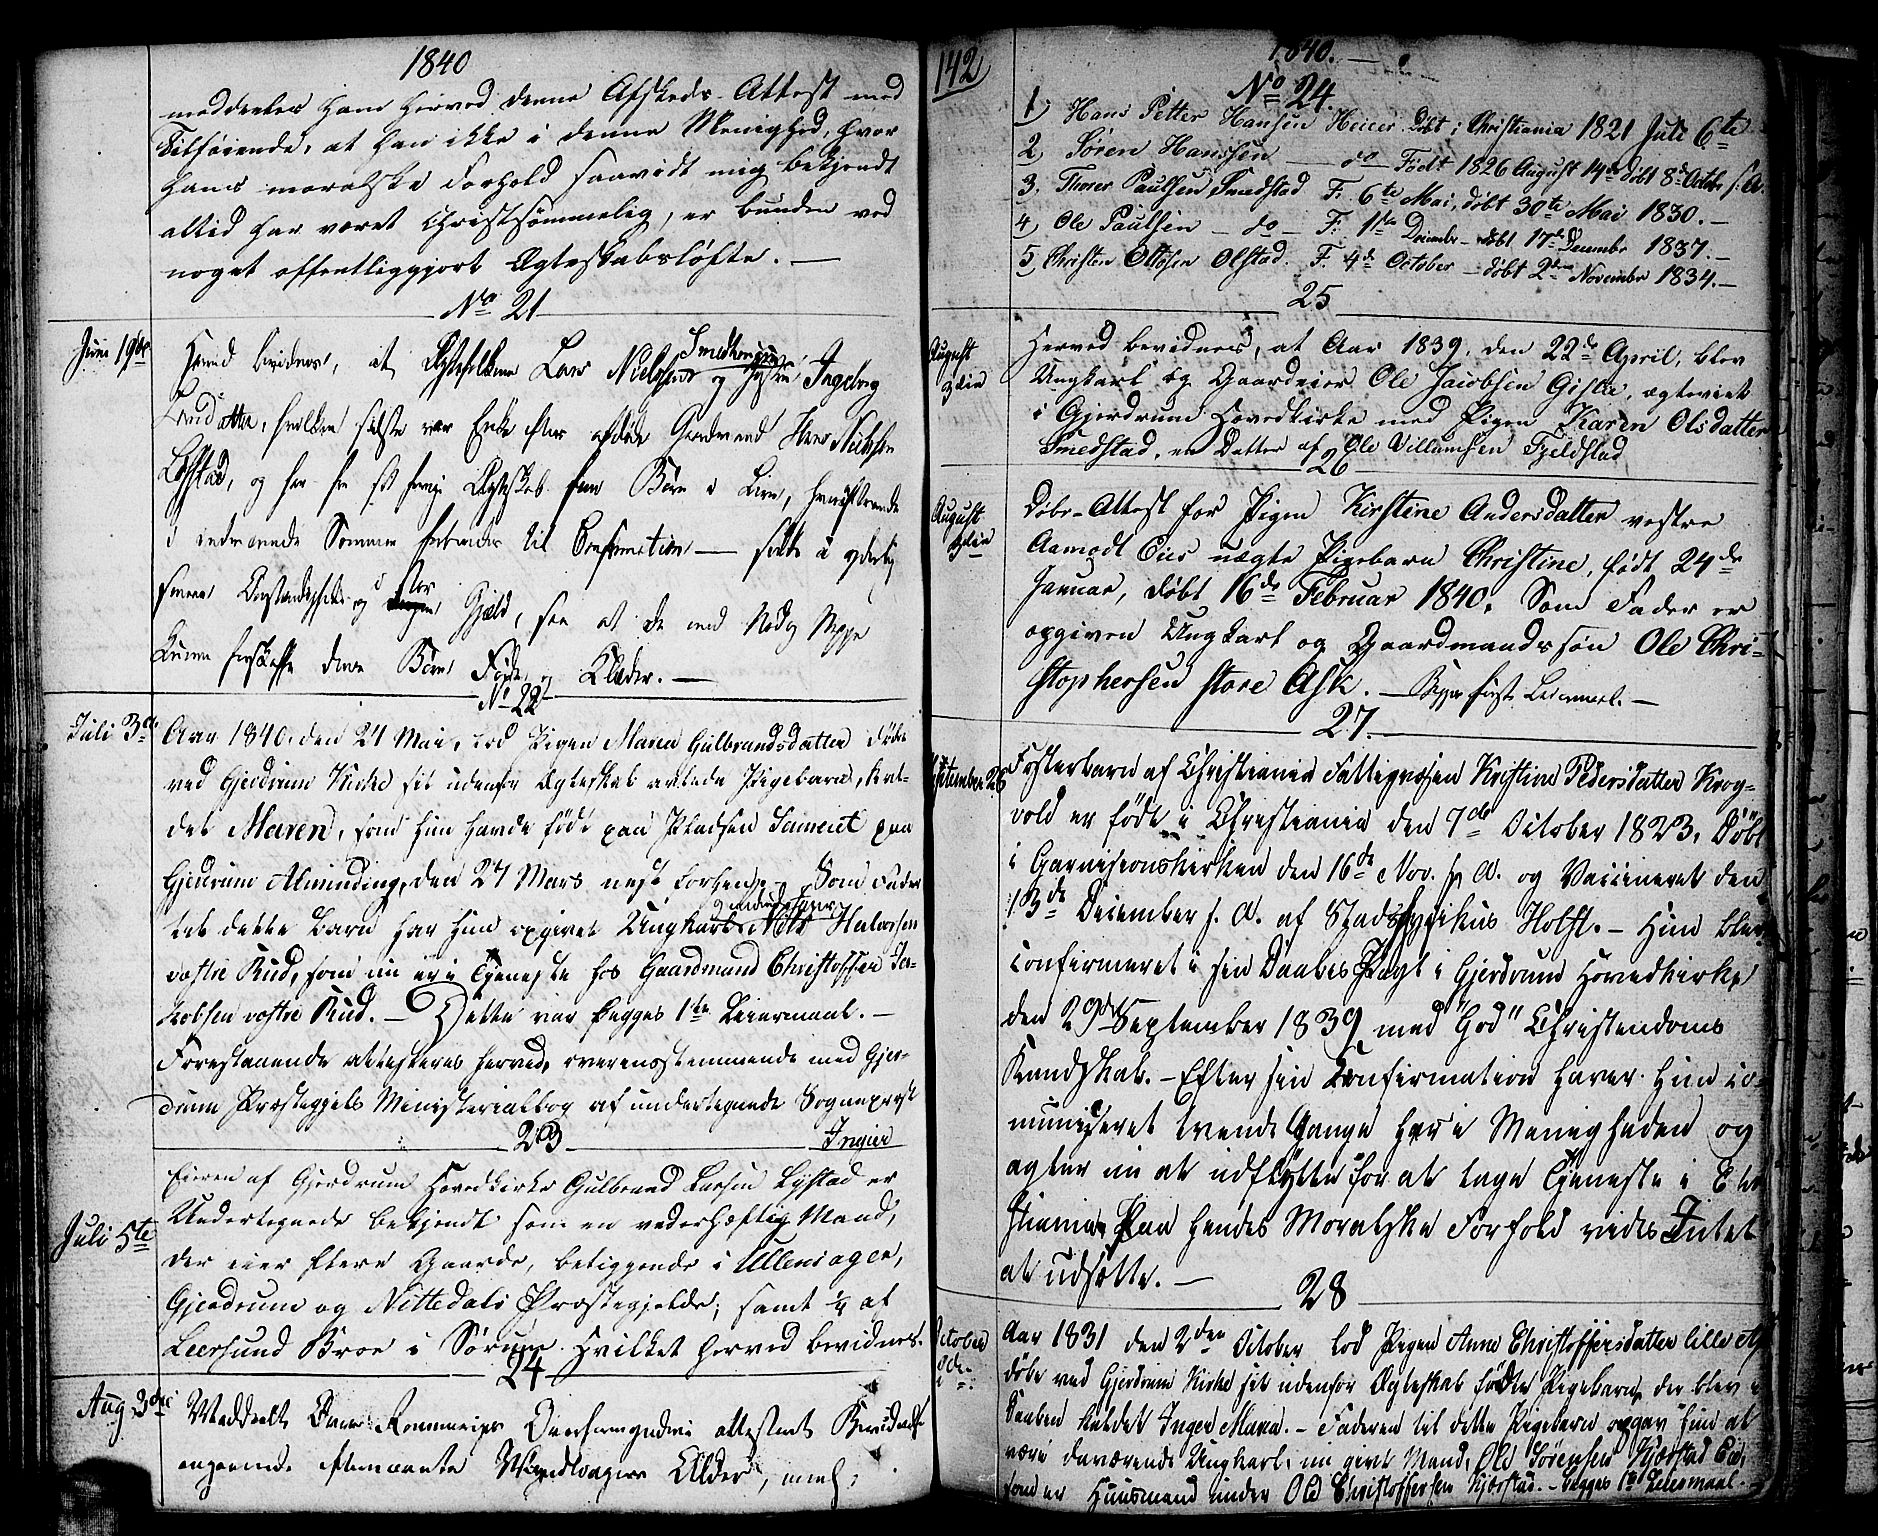 1840
meddeeles ham herved denne Afskeds-Attest med
Tilføiende, at han ikke i denne Menighed, hvor
hans moralske Forhold saavidt mig bekjendt
altid har været Christsømmelig, er bunden ved
noget offentliggjort Ægteskabsløfte. —
No 21
Juni 19de
Herved bevidnes, at Ægtefolkene Lars Nielsen Smedhengen og Hustru Ingeborg
datter, hvilken sidste var Enke efter afdøde Gaardmand Hans Nielsen
og har fra sit forrige Ægteskab fem Børn i Live, hvoraf
i indeværende Sommer forberedes til Confirmation — sidde i yderlig
Omstændigheder og i stor Gjæld, saa at de med Nød og Neppe
kunne forskaffe disse Børn Føde og Klæder. —
No 22
Juli 3de
Aar 1840. den 24 Mai, lod Pigen Maren Gulbrandsdatter døbe
ved Gjerdrum Kirke sit udenfor Ægteskab avlede Pigebarn, kal-
det Maren, som hun havde født paa Pladsen Sameiet paa
Gjerdrum Alminding, den 27 Mars nest forhen. — Som Fader
til dette Barn har hun opgivet Ungkarl Nils Halvorsen
vestre Rud, som nu er i Tjeneste hos Gaardmand Christoffer Ja-
kobsen vestre Rud. — Dette var Begges 1ste Leiermaal. —
Forestaaende attesteres herved, overensstemmende med Gjer-
drum Præstegjels Ministerialbog af undertegnede Sognepræst
23 Ingier
Juli 5te
Eieren af Gjerdrum Hovedkirke Gulbrand Larsen Lystad er
Undertegnede bekjendt som en vederhæftig Mand,
der eier flere Gaarde, beliggende i Ullensager,
Gjerdrum og Nittedals Præstegjelde; samt 1/4 af
Leersund Broe i Sørum. Hvilket herved bevidnes.
24
Aug 3die
Meddeelt Øvre Rommerigs Overformynderi attesteret
angaaende efternævnte Alder, nml:
142
1840. —
No 24.
1) Hans Petter Hansen Heier. Døbt i Christiania 1821 Juli 6te
2, Søren Hanssen — do — Født 1826 August 14de døbt 8de Octbr s. A.
3, Thorer Paulsen Smedstad F. 6te Mai, døbt 30te Mai 1830. —
4, Ole Paulsen — do — F. 1ste Decembr — døbt 17de Decembr 1837. —
5, Christen Ottosen Olstad. F. 4de October — døbt 2den November 1834. —
25
August 3die
Herved bevidnes, at Aar 1839. den 22de April, blev
Ungkarl og Gaardeier Ole Jacobsen Gislie, ægteviet
i Gjerdrum Hovedkirke med Pigen Karen Olsdatter
Smedstad, en Datter af Ole Villumsen Fjeldstad
26
August
Døbe-Attest for Pigen Kirstine Andersdatter vestre
Aamodt Eies uægte Pigebarn Christine, født 24de
Januar, døbt 16de Februar 1840. Som Fader er
opgiven Ungkarl og Gaardmandssøn Ole Chri-
stophersen store Ask. — Begges første Leiermaal. —
27.
September 26
Fosterbarn af Christiania Fattigvæsen Kristine Pedersdatter Krog-
vold er født i Christiania den 7de October 1823. Døbt
i Garnisonskirken den 16de Nov. s. A. og Vaccineret den
13de December s. A. af Stadsfysikus Holst. — Hun blev
confirmeret i sin Daabes Pagt i Gjerdrum Hovedkirke
den 29de September 1839 med "God" Christendoms
Kundskab. — Efter sin Confirmation haver hun co-
municeret tvende Gange her i Menigheden og
agter nu at udflytte for at tage Tjeneste i Chri-
stiania. Paa hendes Moralske Forhold vides Intet
at udsætte. —
28
October
Aar 1831 den 2den October lod Pigen Anne Christoffersdatter lille Ask
døbe ved Gjerdrum Kirke sit udenfor Ægteskab fødte Pigebarn, der blev i
Daaben kaldet Inger Maria. — Faderen til dette Pigebarn opgav hun at
være daværende Ungkarl, nu givt Mand, Ole Sørensen Kjærstad Eie,
som er Huusmand under Ole Christoffersen Kjærstad. — Begges 1ste Leiermaal. —